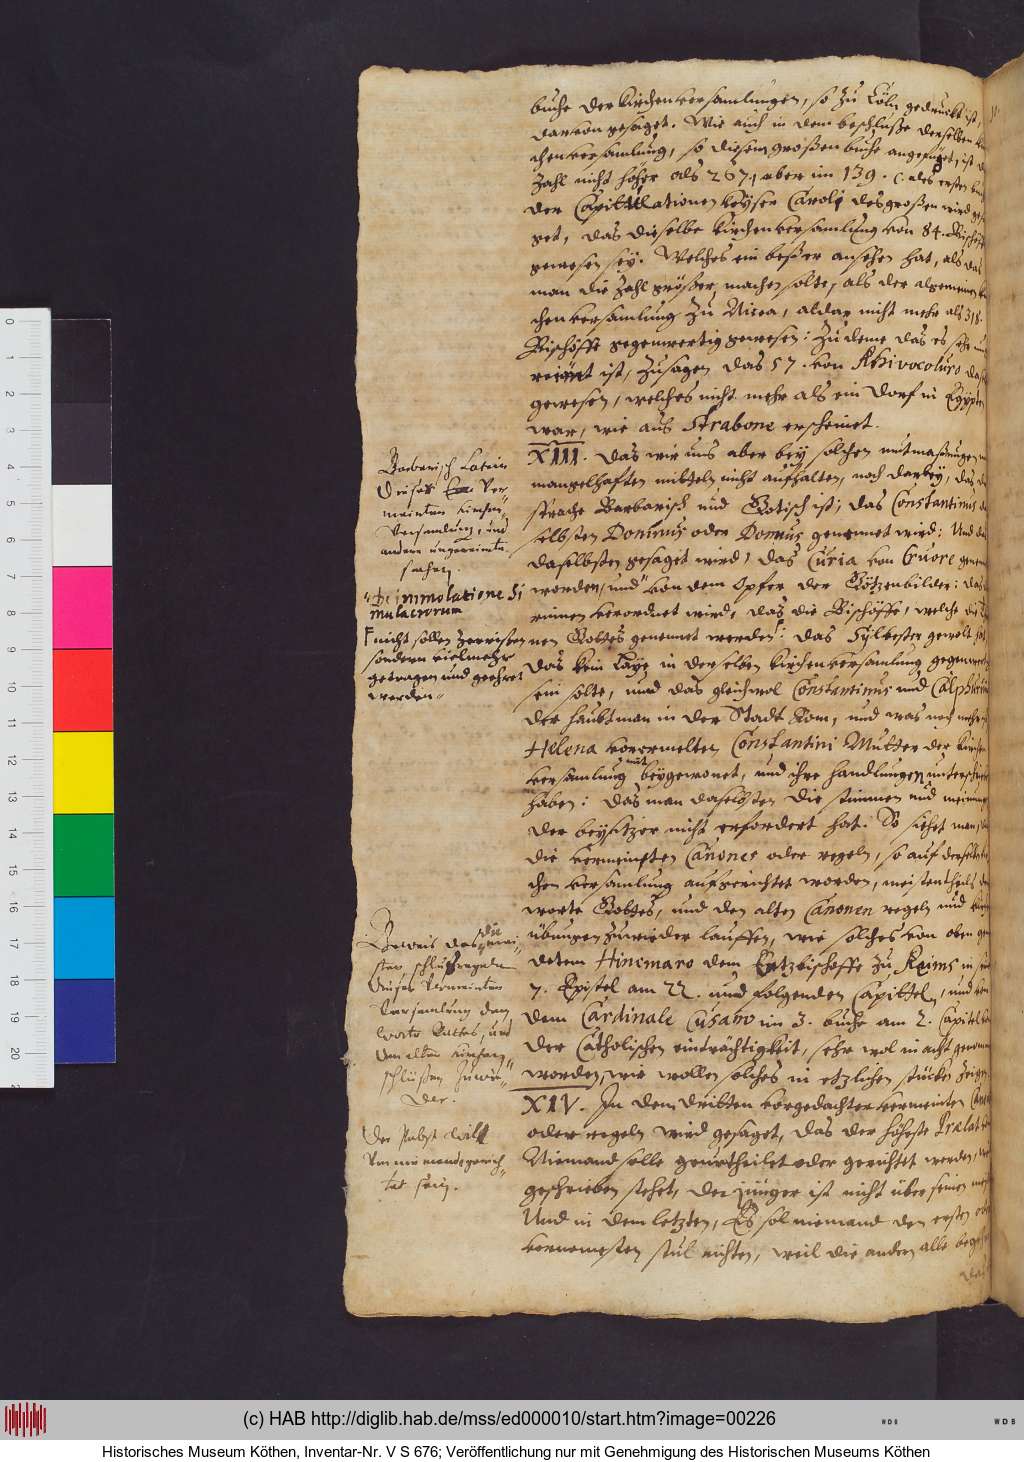 buche der kirchenversamlungen, so zu Cöln gedruckt ist,
darvon gesaget. Wie auch in dem beschluße derselben
chenversamlung, so diesem großen buche angefüget, ist
Zahl nicht höher als 267, aber im 139. c. des ersten
der Capittulationen keyser Caroli des großen wird
get, das dieselbe kirchenversamlung von 84. Bischöff
gewesen sey. Welches ein beßer ansehen hat, als das
man die Zahl größer machen solte, als der algemeinen
chenversamlung zu Nicea, aldar nicht mehr als 318.
Bischöffe gegenwertig gewesen: Zu deme das es sehr
ist, zusagen das 57. von Rhivocoluro
gewesen, welches nicht mehr als ein Dorf in Egypten
war, wie aus Strabone erscheinet.
XIII. Das wir uns aber bey solchen mutmaßungen
mangelhaften mitteln nicht aufhalten, noch darbey, das
sprache Barbarisch und Gotisch ist; das Constantinus
selbsten Dominus oder Domnus genennet wird: Und
daselbsten gesaget wird, das Curia von Cruore
worden, und von dem Opfer der Götzenbilder: das
innen verordnet wird, das die Bischöffe, welche die
nen Gottes genennet werden: das Sylvester gewolt hat
das kein Laye in derselben kirchenversamlung gegenwertig
sein solte, unnd das gleichwol Constantinus und
der haubtman in der Stadt Rom, und was noch mehr
Helena vorermelten Constantini Mutter der kirchen
versamlung mit beygewonet, und ihre handlungen
haben: das man daselbsten die stimmen und meinung
der beysitzer nicht erfordert hat. So siehet man,
die vermeinten Canones oder regeln, so auf derselben
chen versamlung aufgerichtet worden, meistentheils
worte Gottes, und den alten Canonen regeln und
übungen zuwieder lauffen, wie solches von oben
detem Hincmaro dem Ertzbischoffe zu Reims in
7. Epistel am 22. und folgenden Capitteln, und
dem Cardinale Cusano im 3. buche am 2. Capittel
der Catholischen einträchtigkeit, sehr wol in acht genommen
worden, wie wollen solches in etzlichen stücken zeigen.
XIV. In dem dritten vorgedachter vermeinten
oder regeln wird gesaget, das der höheste Prælat
Niemand solle geurtheilet oder gerichtet werden,
geschrieben stehet, der jünger ist nicht über seinen
Und in dem letzten, Es sol niemand den ersten
vornemesten stul richten, weil die andern alle
Barbarisch Latein
dieser Ver-
meinten kirchen-
versamlung, und
andere ungereimte
sachen.
De immolatione Si
mulacrorum
nicht sollen zerrißen
sondern vielmehr
getragen und geehret
werden
Beweis das die mei-
sten schlußregeln
dieser vermeinten
versamlung dem
worte Gottes, und
den alten kirchen-
schlüßen zuwie-
der.
Der Pabst will
von niemande gerich-
tet sein.
(c) HAB http://diglib.hab.de/mss/ed000010/start.htm?image=00226
Historisches Museum Köthen, Inventar-Nr. V S 676; Veröffentlichung nur mit Genehmigung des Historischen Museums Köthen